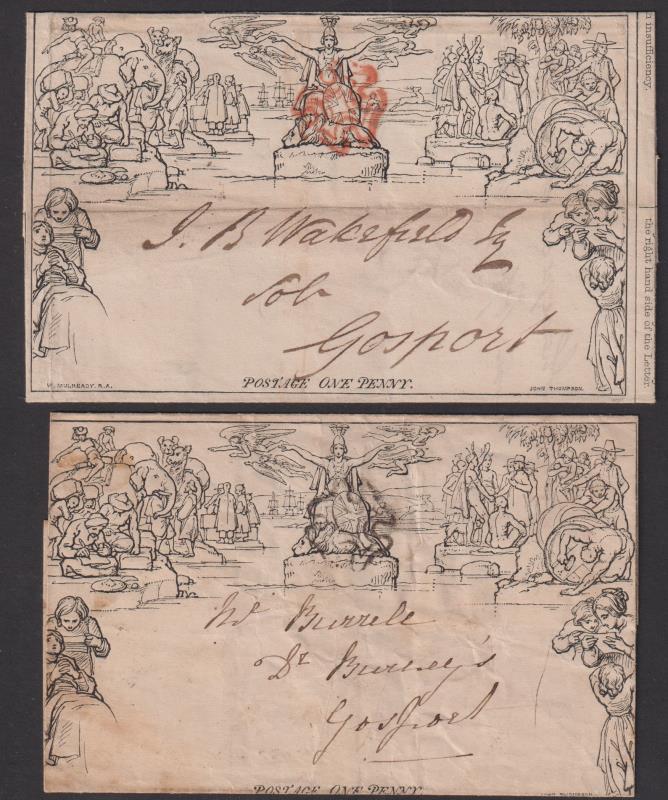 n insufficiency.
the right hand side of the Letter
J. B Wakefield Esq
Solr
Gosport
W. MULREADY. R.A.
POSTAGE ONE PENNY.
JOHN THOMPSON.
Mr Burrell
Dr Burney's
Gosport
POSTAGE ONE PENNY.
JOHN THOMPSON